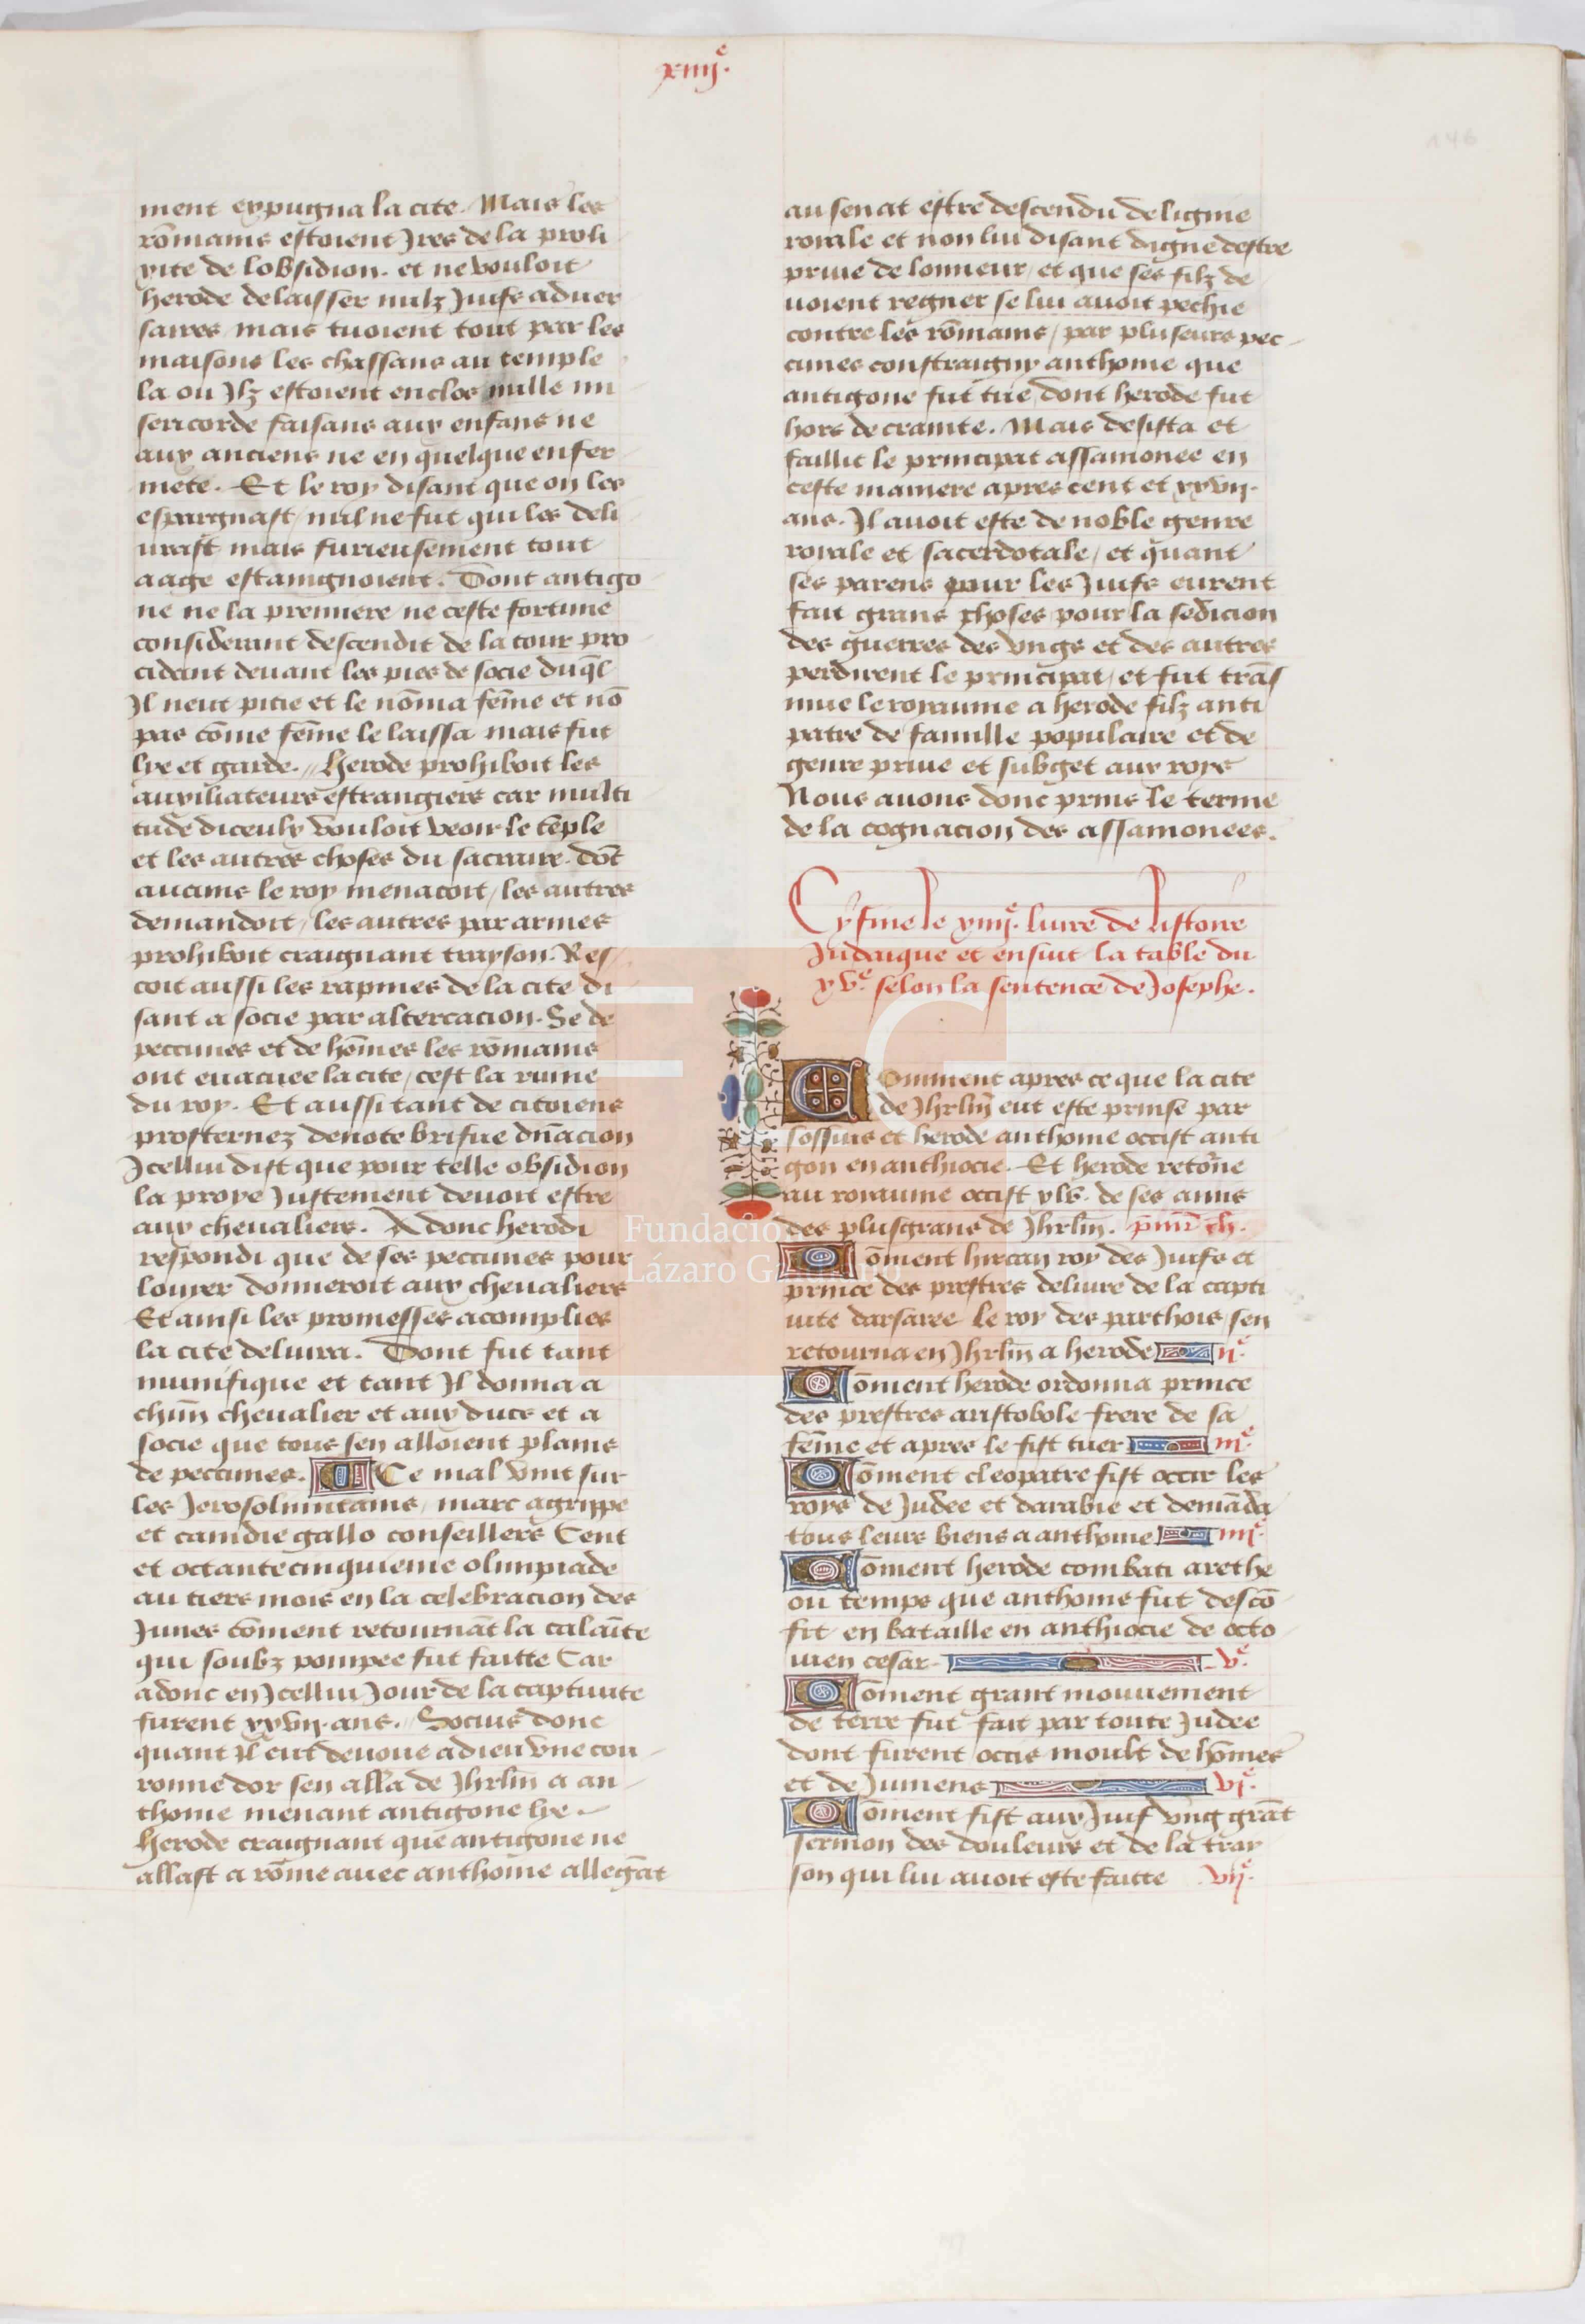 xiiij.e
146
ment expugna la cite. Mais les
rōmains estoient Jres de la proli
xite de lobsidion. et ne vouloit
herode delaisser nulz Juifs aduer
saires mais tuoient tout par les
maisons les chassans au temple
la ou Jlz estoient enclos nulle mi
sericorde faisans aux enfans ne
aux anciens ne en quelque enfer
mete. Et le roy disant que on les
espargnast / nul ne fut qui les deli
urast mais furieusement tout
aage estaingnoient. Dont antigo
ne ne la premiere ne ceste fortune
considerant descendit de la tour pro
cidant deuant les pies de socie duq̄l
Jl neut pitie et le nōma fēme et nō
pas cōme fēme le laissa mais fut
lye et garde. // Herode prohiboit les
auxiliateurs estrangiers car multi
tude diceulx vouloit veoir le tēple
et les autres choses du sacraire. dōt
aucuns le roy menacoit / les autres
demandoit / les autres par armes
prohiboit craignant trayson. Res
coit aussi les rapines de la cite di
sant a socie par altercacion. Se de
peccunes et de hōmes les rōmains
ont euacuee la cite / cest la ruine
du roy. Et aussi tant de citoiens
prosternez denote brifue dn̄acion
Jcellui dist que pour telle obsidion
la proye Justement deuoit estre
aux cheualiers. Adonc herode
respondi que de ses peccunes pour
louyer donneroit aux cheualiers
Et ainsi les promesses acomplies
la cite deliura. Dont fut tant
munifique et tant Jl donna a
chūn cheualier et aux ducs et a
socie que tous sen alloient plains
de peccunes. Ce mal vint sur
les Jerosolimitains / marc agrippe
et canidie gallo conseillers Cent
et octantecinquieme olimpiade
au tiers mois en la celebracion des
Junes cōment retournāt la calaīte
qui soubz pompee fut faitte Car
adonc en Jcellui Jour de la captiuite
furent xxvij. ans. // Socius donc
quant Jl eut deuoue a dieu vne cou
ronne dor sen alla de Jhrlm̄ a an
thoine menant antigone lye.
Herode craignant que antigone ne
allast a rōme auec anthoine allegāt
au senat estre descendu de lignie
roiale et non lui disant digne destre
priue de lonneur / et que ses filz de
uoient regner se lui auoit pechie
contre les rōmains / par pluseurs pec
cunes constraigny anthoine que
antigone fut tue / dont herode fut
hors de crainte. Mais desista et
faillit le principat assamonee en
ceste maniere apres cent et xxvij.
ans. Jl auoit este de noble genre
roiale et sacerdotale / et quant
ses parens pour les Juifs eurent
fait grans choses pour la sedicion
des guerres des vngs et des autres
perdirent le principat / et fut trās
mue le royaume a herode filz anti
patre de famille populaire et de
genre priue et subget aux roys
Nous auons donc prins le terme
de la cognacion des assamonees.
Cy fine le xiiij.e liure de listoire
Judaique et ensuit la table du
xv.e selon la sentence de Josephe.
Comment apres ce que la cite
de Jhrlm̄ eut este prinse par
sossius et herode anthoine occist anti
gon en anthiocie. Et herode retōne
au royaume occist xlv. de ses amis
des plus grans de Jhrlm̄. pm̄r ch.
Cōment hircan roy des Juifs et
prince des prestres deliure de la capti
uite darsaree le roy des parthois / sen
retourna en Jhrlm̄ a herode ij.e
Cōment herode ordonna prince
des prestres aristobole frere de sa
fēme et apres le fist tuer iij.e
Cōment cleopatre fist occir les
roys de Judee et darabie et demāda
tous leurs biens a anthoine iiij.e
Cōment herode combati arethe
ou temps que anthoine fut descō
fit en bataille en anthiocie de octo
uien cesar. v.e
Cōment grant mouuement
de terre fut fait par toute Judee
dont furent occis moult de hōmes
et de Jumens vj.e
Cōment fist aux Juif vng grāt
sermon des douleurs et de la tray
son qui lui auoit este faitte vij.e
Fundación
Lázaro Galdiano